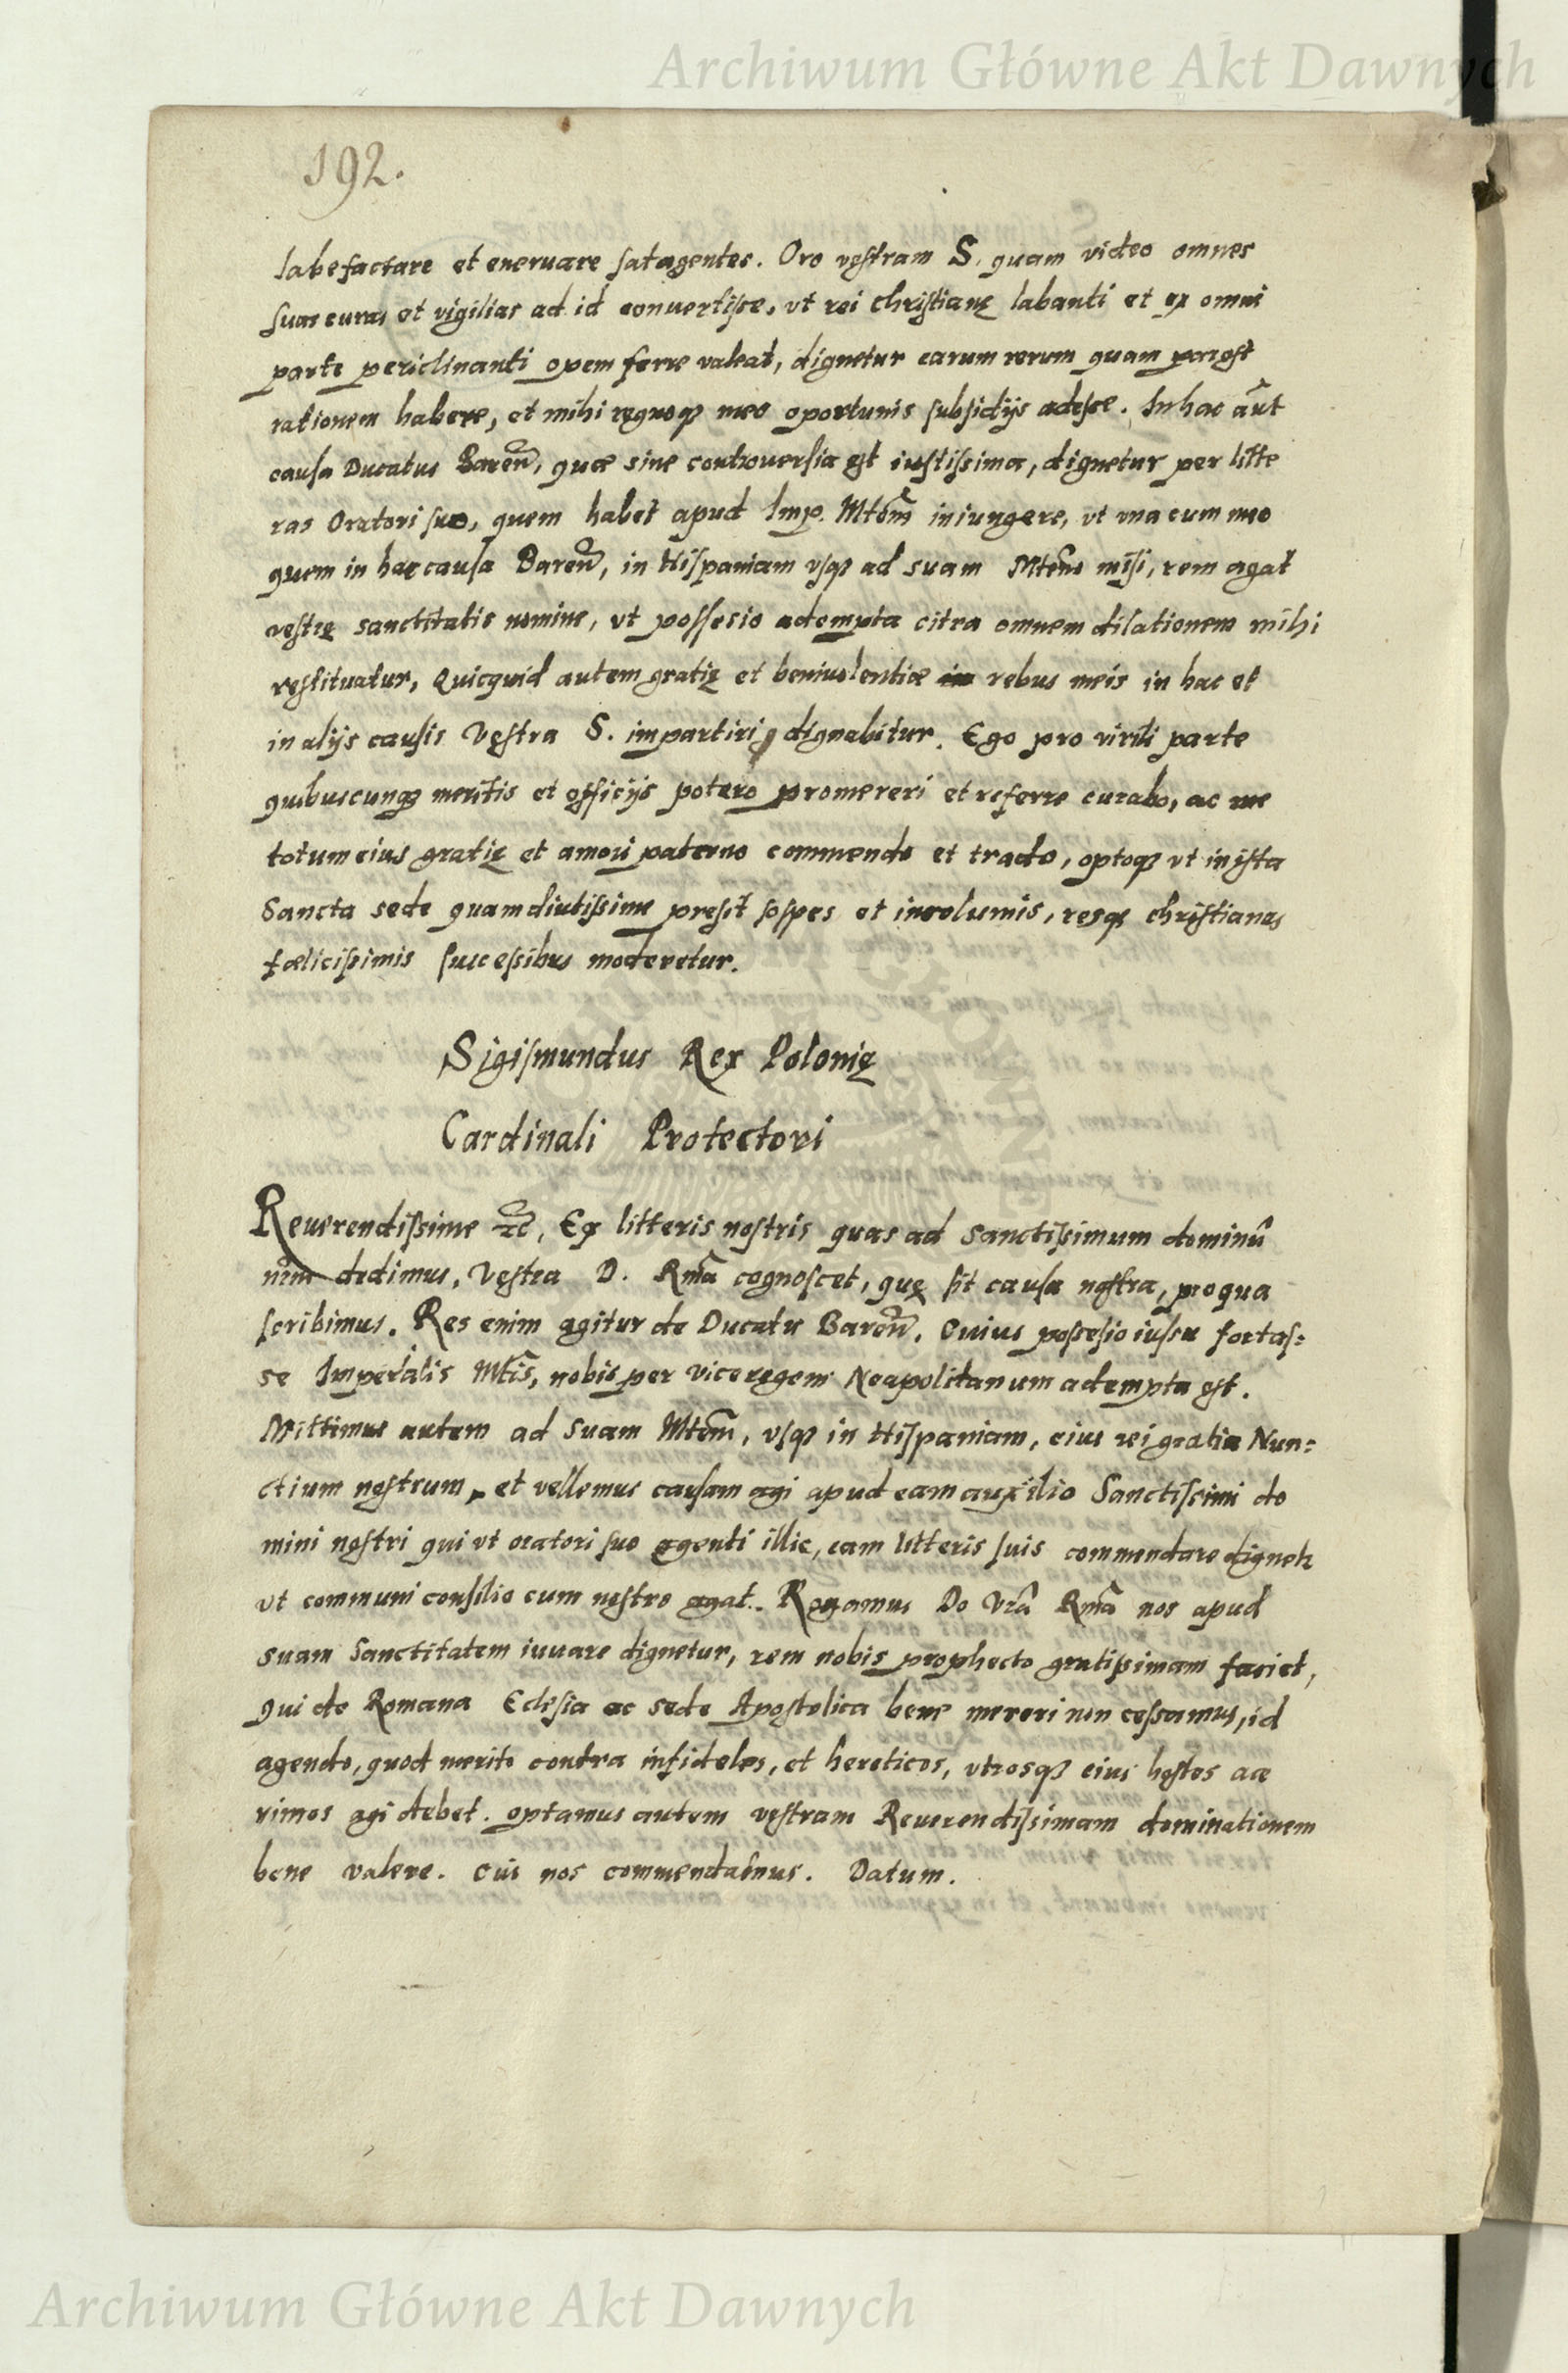 Archiwum Główne Akt Dawnych
192.
labefactare et eneruare satagentes. Oro vęstram S. quam video omnes
suas curas et vigilias ad id conuertisse, vt rei christianę labanti et ex omni
parte periclinanti opem ferre valeat, dignetur earum rerum quam par est
rationem habere, et mihi regnoqꝫ meo oportunis subsidijs adesse. In hac aūt
causa Ducatus Bareñ, quæ sine controuersia est iustissima, dignetur per litte
ras Oratori suo, quem habet apud Imp. Mtem̃ iniungere, vt vna cum meo
quem in hac causa Bareñ, in Hispaniam vsqꝫ ad suam Mtem̃ misi, rem agat
vestrę sanctitatis nomine, vt possesio adempta citra omnem dilationem mihi
restituatur, Quicquid autem gratię et beniuolentiæ in rebus meis in hac et
in alijs causis Vęstra S. impartiri dignabitur. Ego pro virili parte
quibuscunqꝫ meritis et officijs potero promereri et referre curabo, ac me
totum eius gratię et amori paterno commendo et trado, optoqꝫ vt in ista
Sancta sede quamdiutissime presit sospes et incolumis, resqꝫ christianas
fœlicissimis successibus moderetur.
Sigismundus Rex Polonię
Cardinali Protectori
Reuerendissime etc̃, Ex litteris nostris quas ad sanctissimum dominū
nrm̃ dedimus, Vęstra D. Rmã cognoscet, quę sit causa nostra, pro qua
scribimus. Res enim agitur de Ducatu Bareñ. Cuius possesio iussu fortas:
se Imperialis Mtis̃, nobis per viceregem Neapolitanum adempta est.
Mittimus autem ad suam Mtem̃, vsqꝫ in Hispaniam, eius rei gratia Nun:
ctium nostrum, et vellemus causam agi apud eam auxilio Sanctissimi do
mini nostri qui vt oratori suo agenti illic, eam litteris suis commendare dignetꝛ
vt communi consilio cum nostro agat. Rogamus Do Vrã Rmã nos apud
suam Sanctitatem iuuare dignetur, rem nobis prophecto gratissimam faciet,
qui de Romana Eclesia ac sede Apostolica bene mereri non cessamus, id
agendo, quod merito contra infideles, et hereticos, vtrosqꝫ eius hostes ace
rimos agi debet. optamus autem vęstram Reuerendissimam dominationem
bene valere. cui nos commendamus. Datum.
Archiwum Główne Akt Dawnych